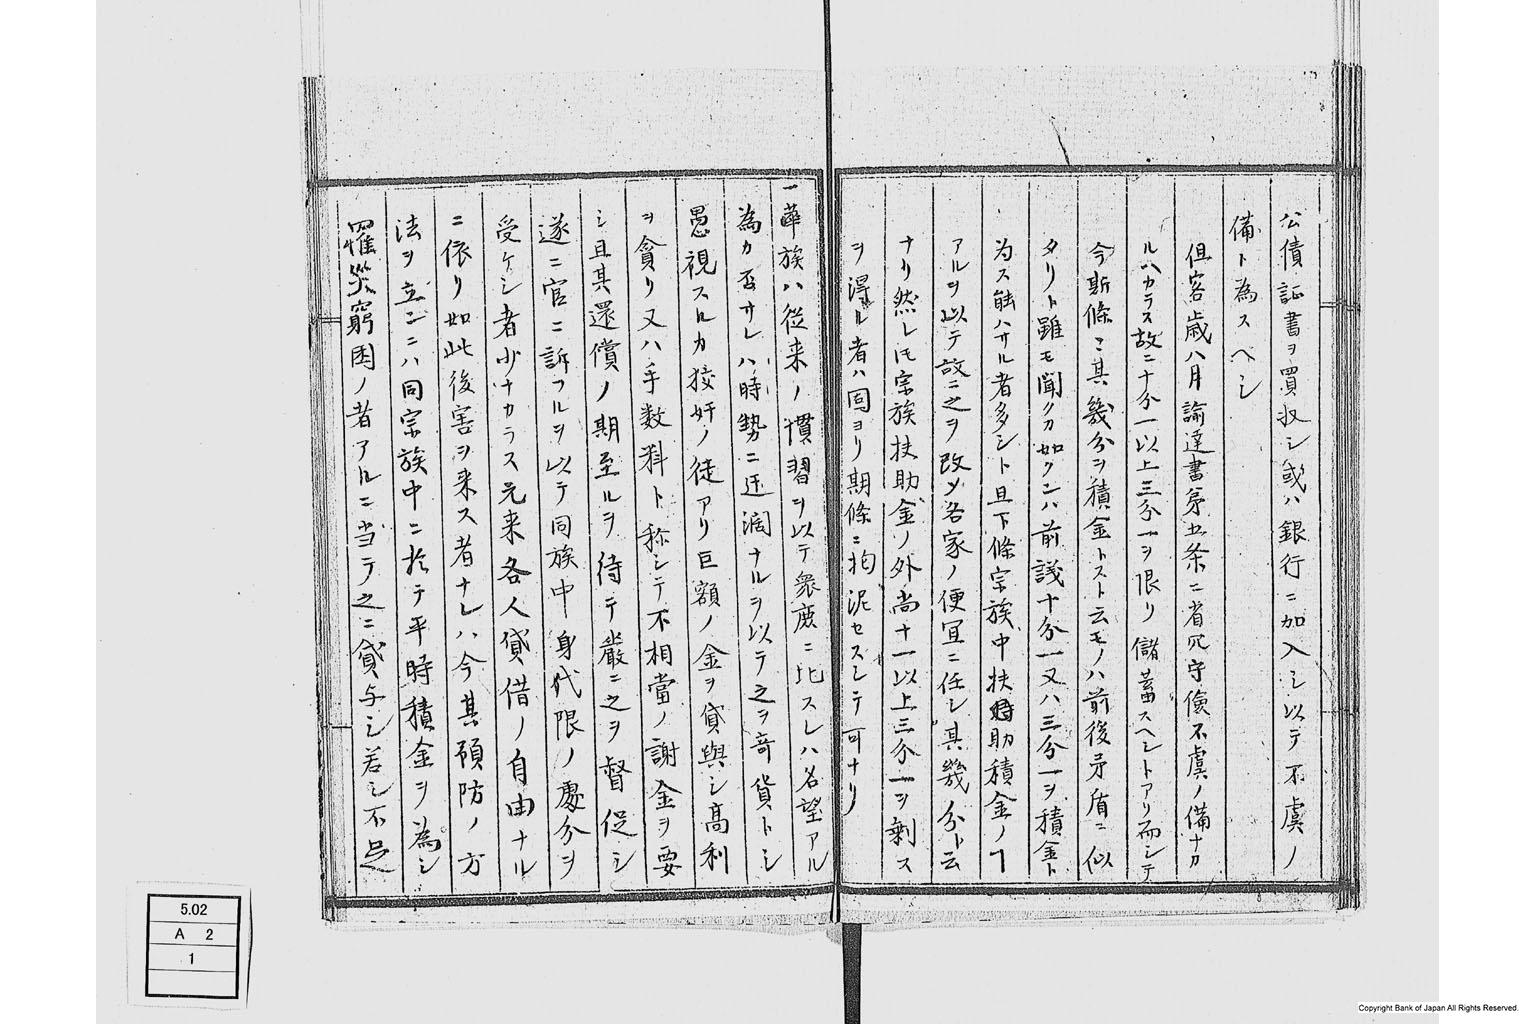 公債証書ヲ買収シ或ハ銀行ニ加入シ以テ不虞ノ
備ト為スヘシ
但客歳八月諭達書第五条ニ省冗守倹不虞ノ備ナカ
ルヘカラス故ニ十分一以上三分一ヲ限リ儲蓄スヘシトアリ而シテ
今斯條ニ其幾分ヲ積金トスト云モノハ前後矛盾ニ似
タリト雖モ聞クカ如クンハ前議十分一又ハ三分一ヲ積金ト
为ス能ハサル者多シト且下條宗族中扶助積金ノヿ
アルヲ以テ故ニ之ヲ改メ各家ノ便宜ニ任シ其幾分ト云
ナリ然レ𪜈宗族扶助金ノ外尚十一以上三分一ヲ剰ス
ヲ得ル者ハ固ヨリ期條ニ拘泥セスシテ可ナリ
一華族ハ従来ノ慣習ヲ以テ衆庶ニ比スレハ名望アル
為カ否サレハ時勢ニ迂濶ナルヲ以テ之ヲ奇貨トシ
愚視スルカ狡奸ノ徒アリ巨額ノ金ヲ貸與シ高利
ヲ貪リ又ハ手数料ト称シテ不相當ノ謝金ヲ要
シ且其還償ノ期至ルヲ待テ嚴ニ之ヲ督促シ
遂ニ官ニ訴フルヲ以テ同族中身代限ノ處分ヲ
受ケシ者少ナカラス元来各人貸借ノ自由ナル
ニ依リ如此後害ヲ来ス者ナレハ今其預防ノ方
法ヲ立ンニハ同宗族中ニ於テ平時積金ヲ為シ
罹災窮困ノ者アルニ当テ之ニ貸与シ若シ不足
5.02
A 2
1
Copyright Bank of Japan All Rights Reserved.